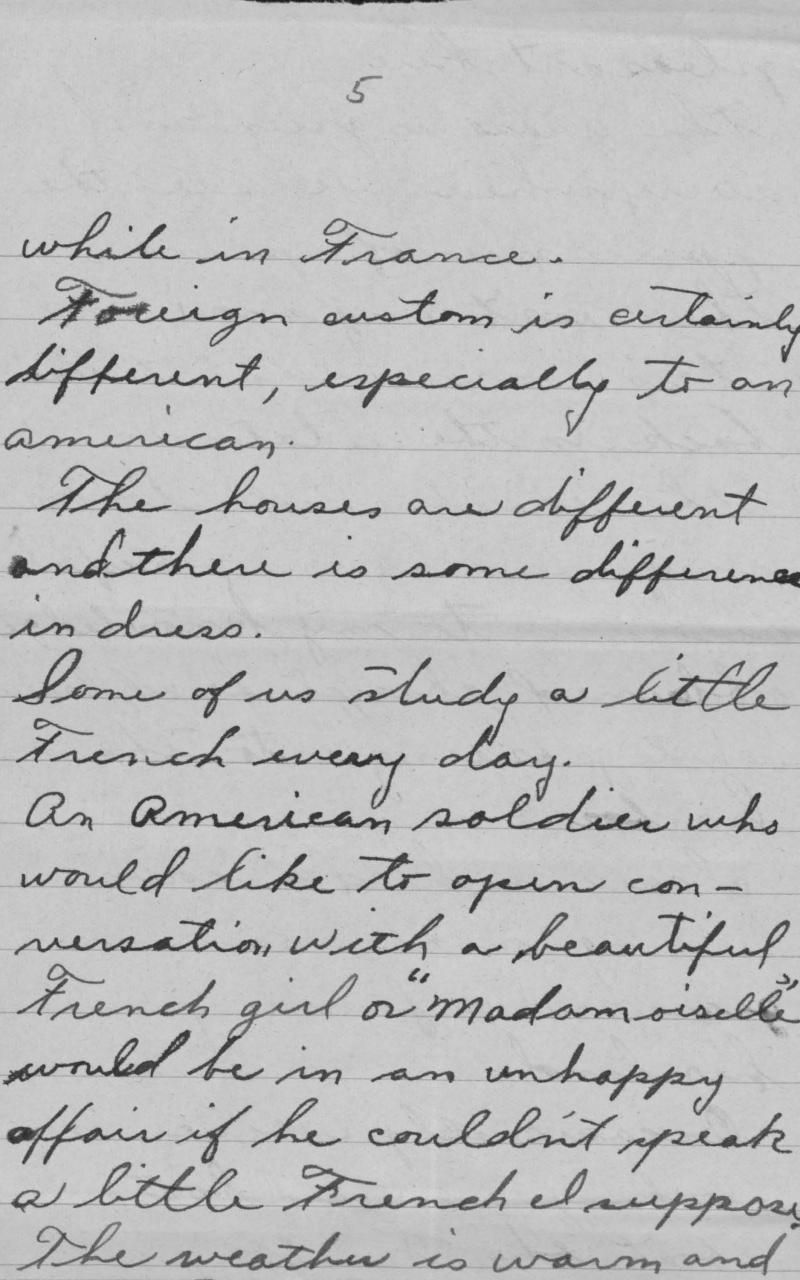 5
while in France.
Foreign custom is certainly
different, especially to an
american.
The houses are different
and there is some difference
in dress.
Some of us study a little
French every day.
An American soldier who
would like to open con-
versation with a beautiful
French girl or "Madamoiselle"
would be in an unhappy
affair if he couldn't speak
a little French I suppose.
The weather is warm and